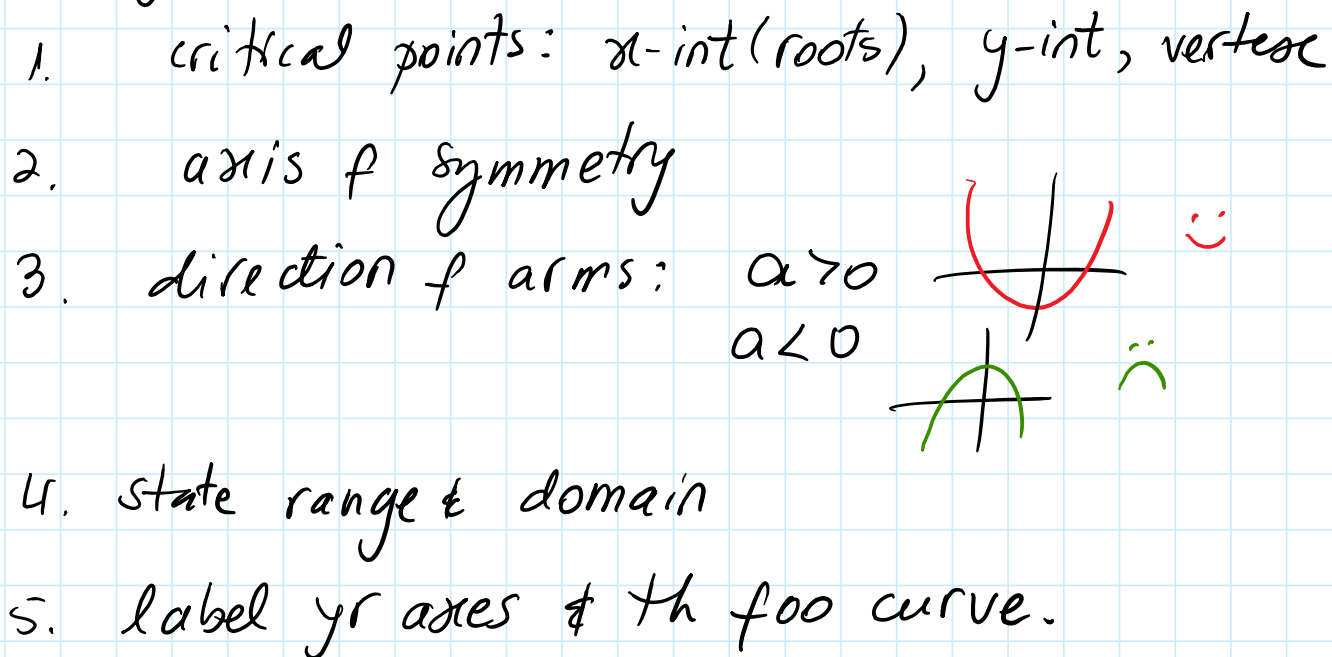 1. critical points: x-int(roots), y-int, vertex
2. axis f symmetry
3. direction f arms: a>0
a<0
4. state range & domain
5. label yr axes & th foo curve.